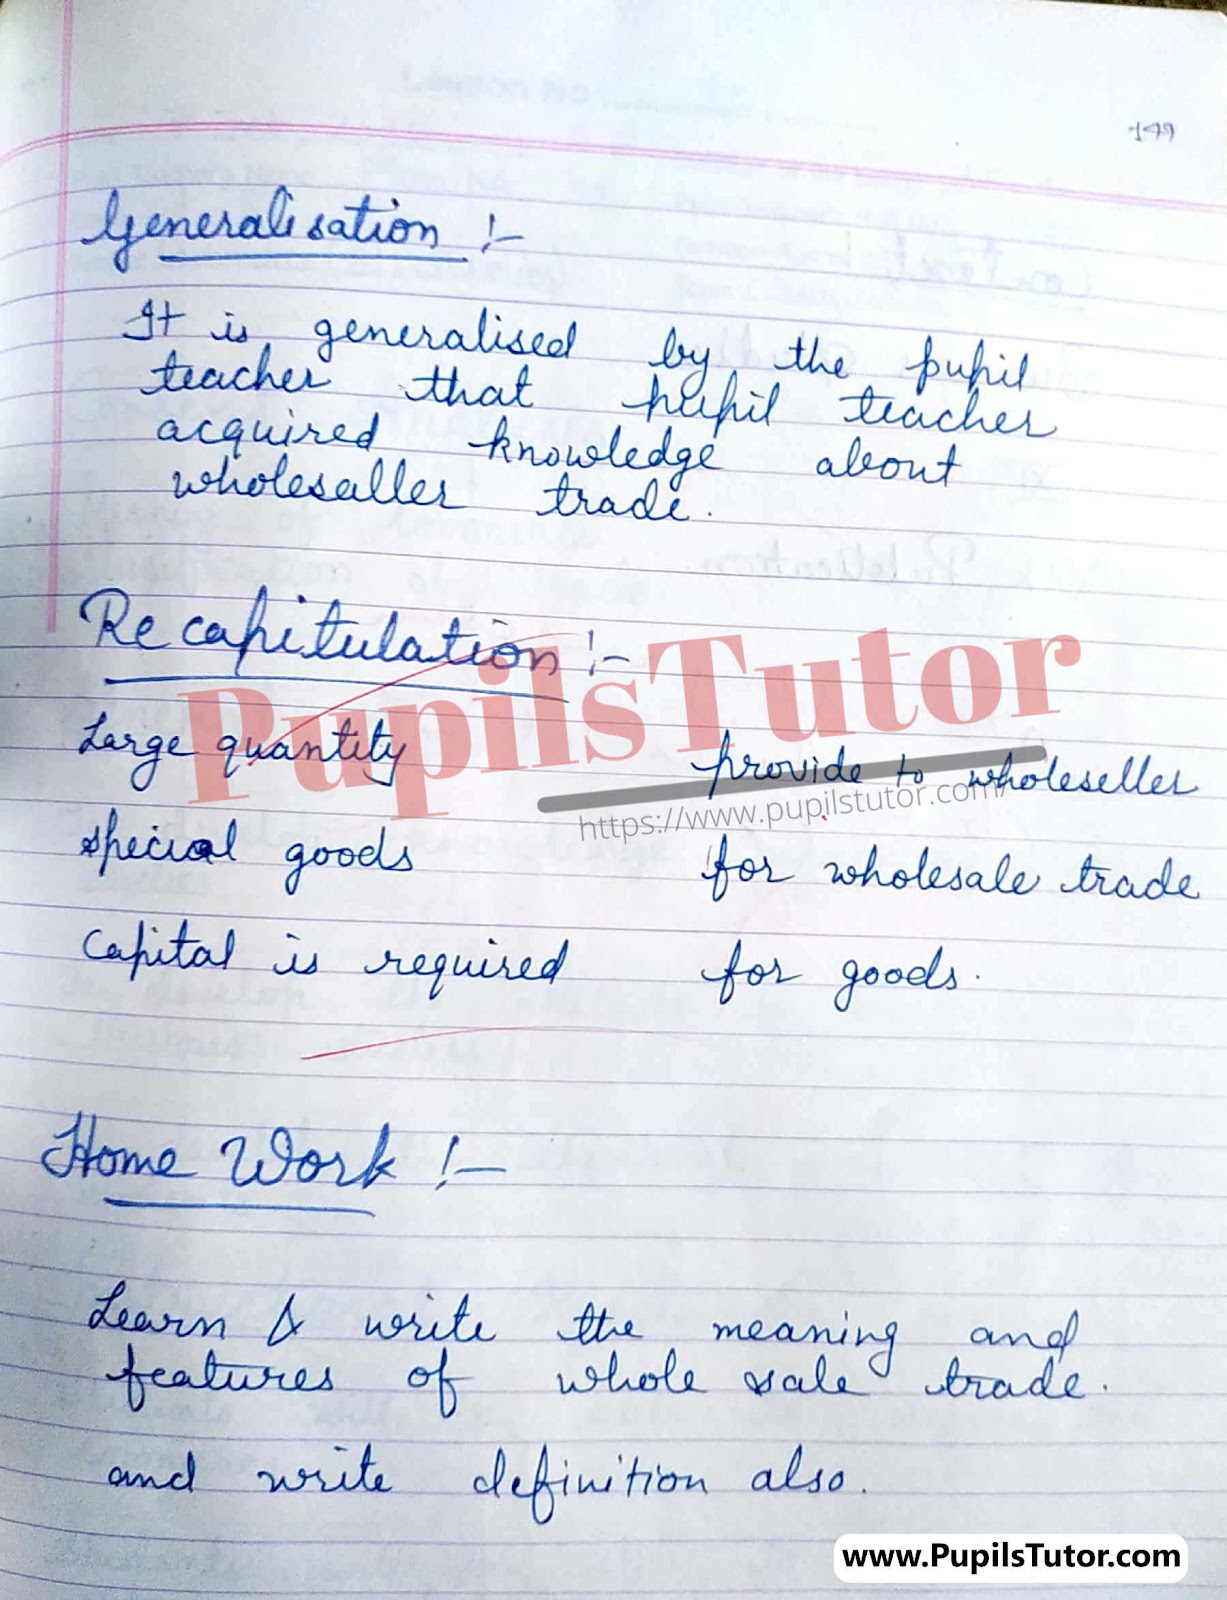 149
Generalisation :-
It is generalised by the pupil
teacher that pupil teacher
acquired knowledge about
wholesaller trade.
Recapitulation :-
PupilsTutor
Large quantity provide to wholeseller
https://www.pupilstutor.com/
special goods for wholesale trade
Capital is required for goods.
Home Work :-
Learn & write the meaning and
features of whole sale trade.
and write definition also.
www.PupilsTutor.com